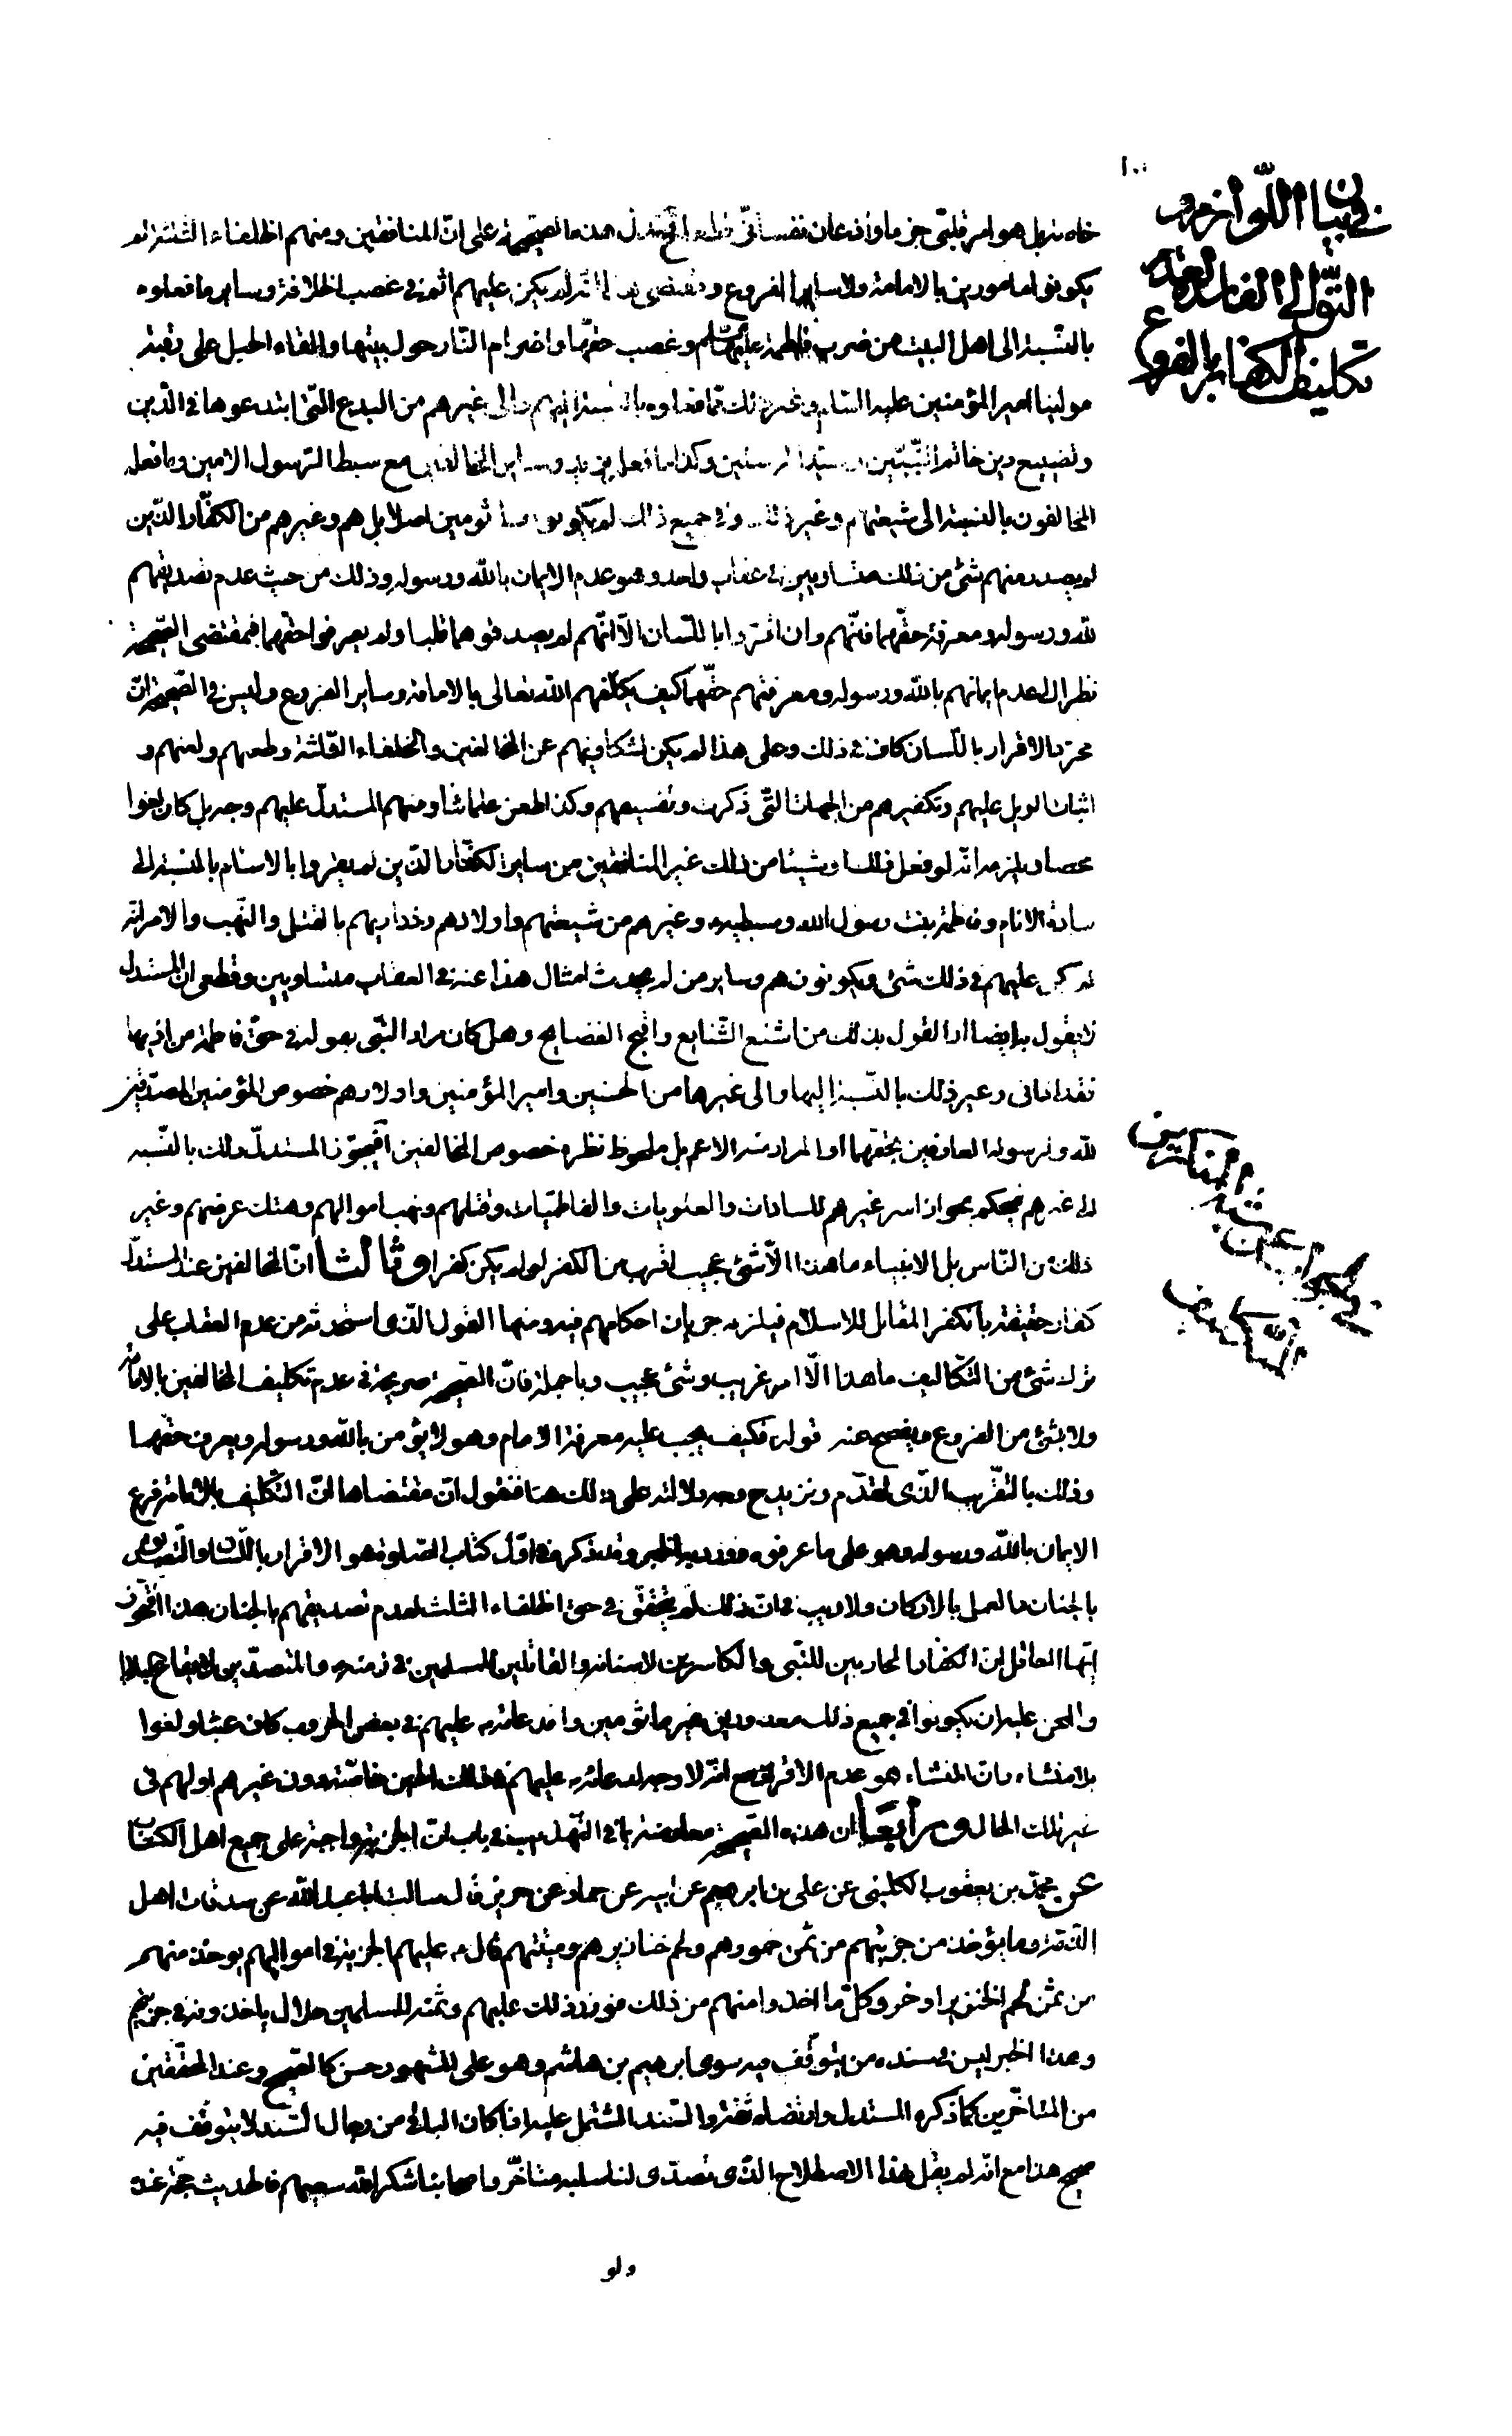 في بيان اللوازم و
التوالي الفاسدة لعدم
تكليف الكفار بالفروع
بل هو امر قلبي جزما واذعان نفساني على ان المنافقين ومنهم الخلفاء الثلثة لم
يكونوا مامورين بالامامة ولا ساير الفروع و عليهم اثم في غصب الخلافة وساير ما فعلوه
بالنسبة الى اهل البيت من ضرب فاطمة عليها السلام وغصب حقها واضرام النار حول بيتها والقاء الحبل على رقبة
مولينا امير المؤمنين عليه السلام وغير ذلك مما فعلوه بالنسبة اليهم والى غيرهم من البدع التي ابتدعوها في الدين
وتضييع دين خاتم النبيين وسيد المرسلين وكذا ما فعل يزيد وساير المخالفين مع سبط الرسول الامين وما فعله
المخالفون بالنسبة الى شيعتهم وغير ذلك وفي جميع ذلك لم يكونوا ماثومين اصلا بل هم وغيرهم من الكفار الذين
لم يصدر منهم شئ من ذلك متساويين في عقاب واحد وهو عدم الايمان بالله ورسوله وذلك من حيث عدم تصديقهم
لله ورسوله ومعرفة حقهما فانهم وان اقروا باللسان الا انهم لم يصدقوهما قلبا ولم يعرفوا حقهما فمقتضى الصحيحة
نظرا الى عدم ايمانهم بالله ورسوله ومعرفتهم حقهما كيف يكلفهم الله تعالى بالامامة وساير الفروع وليس في الصحيحة ان
مجرد الاقرار باللسان كاف في ذلك وعلى هذا لم يكن لشكاويهم عن المخالفين والخلفاء الثلثة وطعنهم ولعنهم و
اثبات الويل عليهم وتكفيرهم من الجهات التي ذكرت وتفسيقهم وكذا طعن علمائنا ومنهم المستدل عليهم وجه بل كان لغوا
محضا ويلزم انه لو فعل ذلك او شيئا من ذلك غير المنافقين من ساير الكفار الذين لم يقروا بالاسلام بالنسبة الى
سادة الانام وفاطمة بنت رسول الله وسبطيه وغيرهم من شيعتهم واولادهم وذراريهم بالقتل والنهب والاسر انه
لم يكن عليهم في ذلك شئ ويكونون هم وساير من لم يحدث امثال هذا عنه في العقاب متساويين وقطعي ان المستدل
لا يقول به ايضا اذ القول بذلك من اشنع الشنايع واقبح الفضايح وهل كان مراد النبي بقوله في حق فاطمة من اذيها
فقد اذاني وغير ذلك بالنسبة اليها والى غيرها من الحسنين وامير المؤمنين واولادهم خصوص المؤمنين المصدقين
لله ولرسوله العارفين بحقهما او المراد منه الاعم بل ملحوظ نظره خصوص المخالفين افيجوز المستدل ذلك بالنسبة
الى غيرهم فيحكم بجواز اسر غيرهم للسادات والعلويات والفاطميات وقتلهم ونهب اموالهم وهتك عرضهم وغير
ذلك من الناس بل الانبياء ما هذا الا شئ عجيب اقرب من الكفر لو لم يكن كفرا وثالثا ان المخالفين عند المستدل
كفار حقيقة بالكفر المقابل للاسلام فيلزمه جريان احكامهم فيه ومنها القول الذي استحدثه من عدم العقاب على
ترك شئ من التكاليف ما هذا الا امر غريب وشئ عجيب وبالجملة فان الصحيحة صريحة في عدم تكليف المخالفين بالامامة
ولا بشئ من الفروع ما يفصح عنه قوله فكيف يجب عليه معرفة الامام وهو لا يؤمن بالله ورسوله ويعرف حقهما
وذلك بالتقريب الذي تقدم ونزيد وجه دلالته على ذلك هنا فنقول ان مقتضاها ان التكليف بالامامة فرع
الايمان بالله ورسوله وهو على ما عرفوه وورد به الخبر وقد ذكره في اول كتاب الصلوة هو الاقرار باللسان والتصديق
بالجنان والعمل بالاركان ولا ريب في ان ذلك لم يتحقق في حق الخلفاء الثلث لعدم تصديقهم بالجنان هذا افتجوز
ايها العاقل ان الكفار المحاربين للنبي والكاسرين لاسنانه والقاتلين للمسلمين في زمنه والمتصدين
والمحن عليه ان يكونوا في جميع ذلك معذورين غير ماثومين وان دعائه عليهم في بعض الحروب كان عبثا ولغوا
بلا منشاء وان المنشاء هو عدم الاقرار مع انه لا وجه لدعائه عليهم في ذلك الحين خاصة دون غيرهم او لهم في
غير تلك الحال ورابعا ان هذه الصحيحة معارضة بما في التهذيب في باب ان الجزية واجبة على جميع اهل الكتاب
عن محمد بن يعقوب الكليني عن علي بن ابرهيم عن ابيه عن حماد عن حريز قال سالت ابا عبد الله عن صدقات اهل
الذمة وما يؤخذ من جزيتهم من ثمن خمورهم ولحم خنازيرهم وميتتهم قال عليهم الجزية في اموالهم يوخذ منهم
من ثمن لحم الخنزير او خمر وكل ما اخذوا منهم من ذلك فوزر ذلك عليهم وثمنه للمسلمين حلال ياخذونه في جزيتهم
وهذا الخبر ليس في سنده من يتوقف فيه سوى ابرهيم بن هاشم وهو على المشهور حسن كالصحيح وعند المحققين
من المتاخرين كما ذكره المستدل وارتضاه ثقة والسند المشتمل عليه اذا كان الباقي من رجال السند لا يتوقف فيه
صحيح هذا مع انه لم يقل بهذا الاصطلاح الذي تصدى لتاسيسه متاخروا اصحابنا شكر الله سعيهم فالحديث حجة عنده
ولو